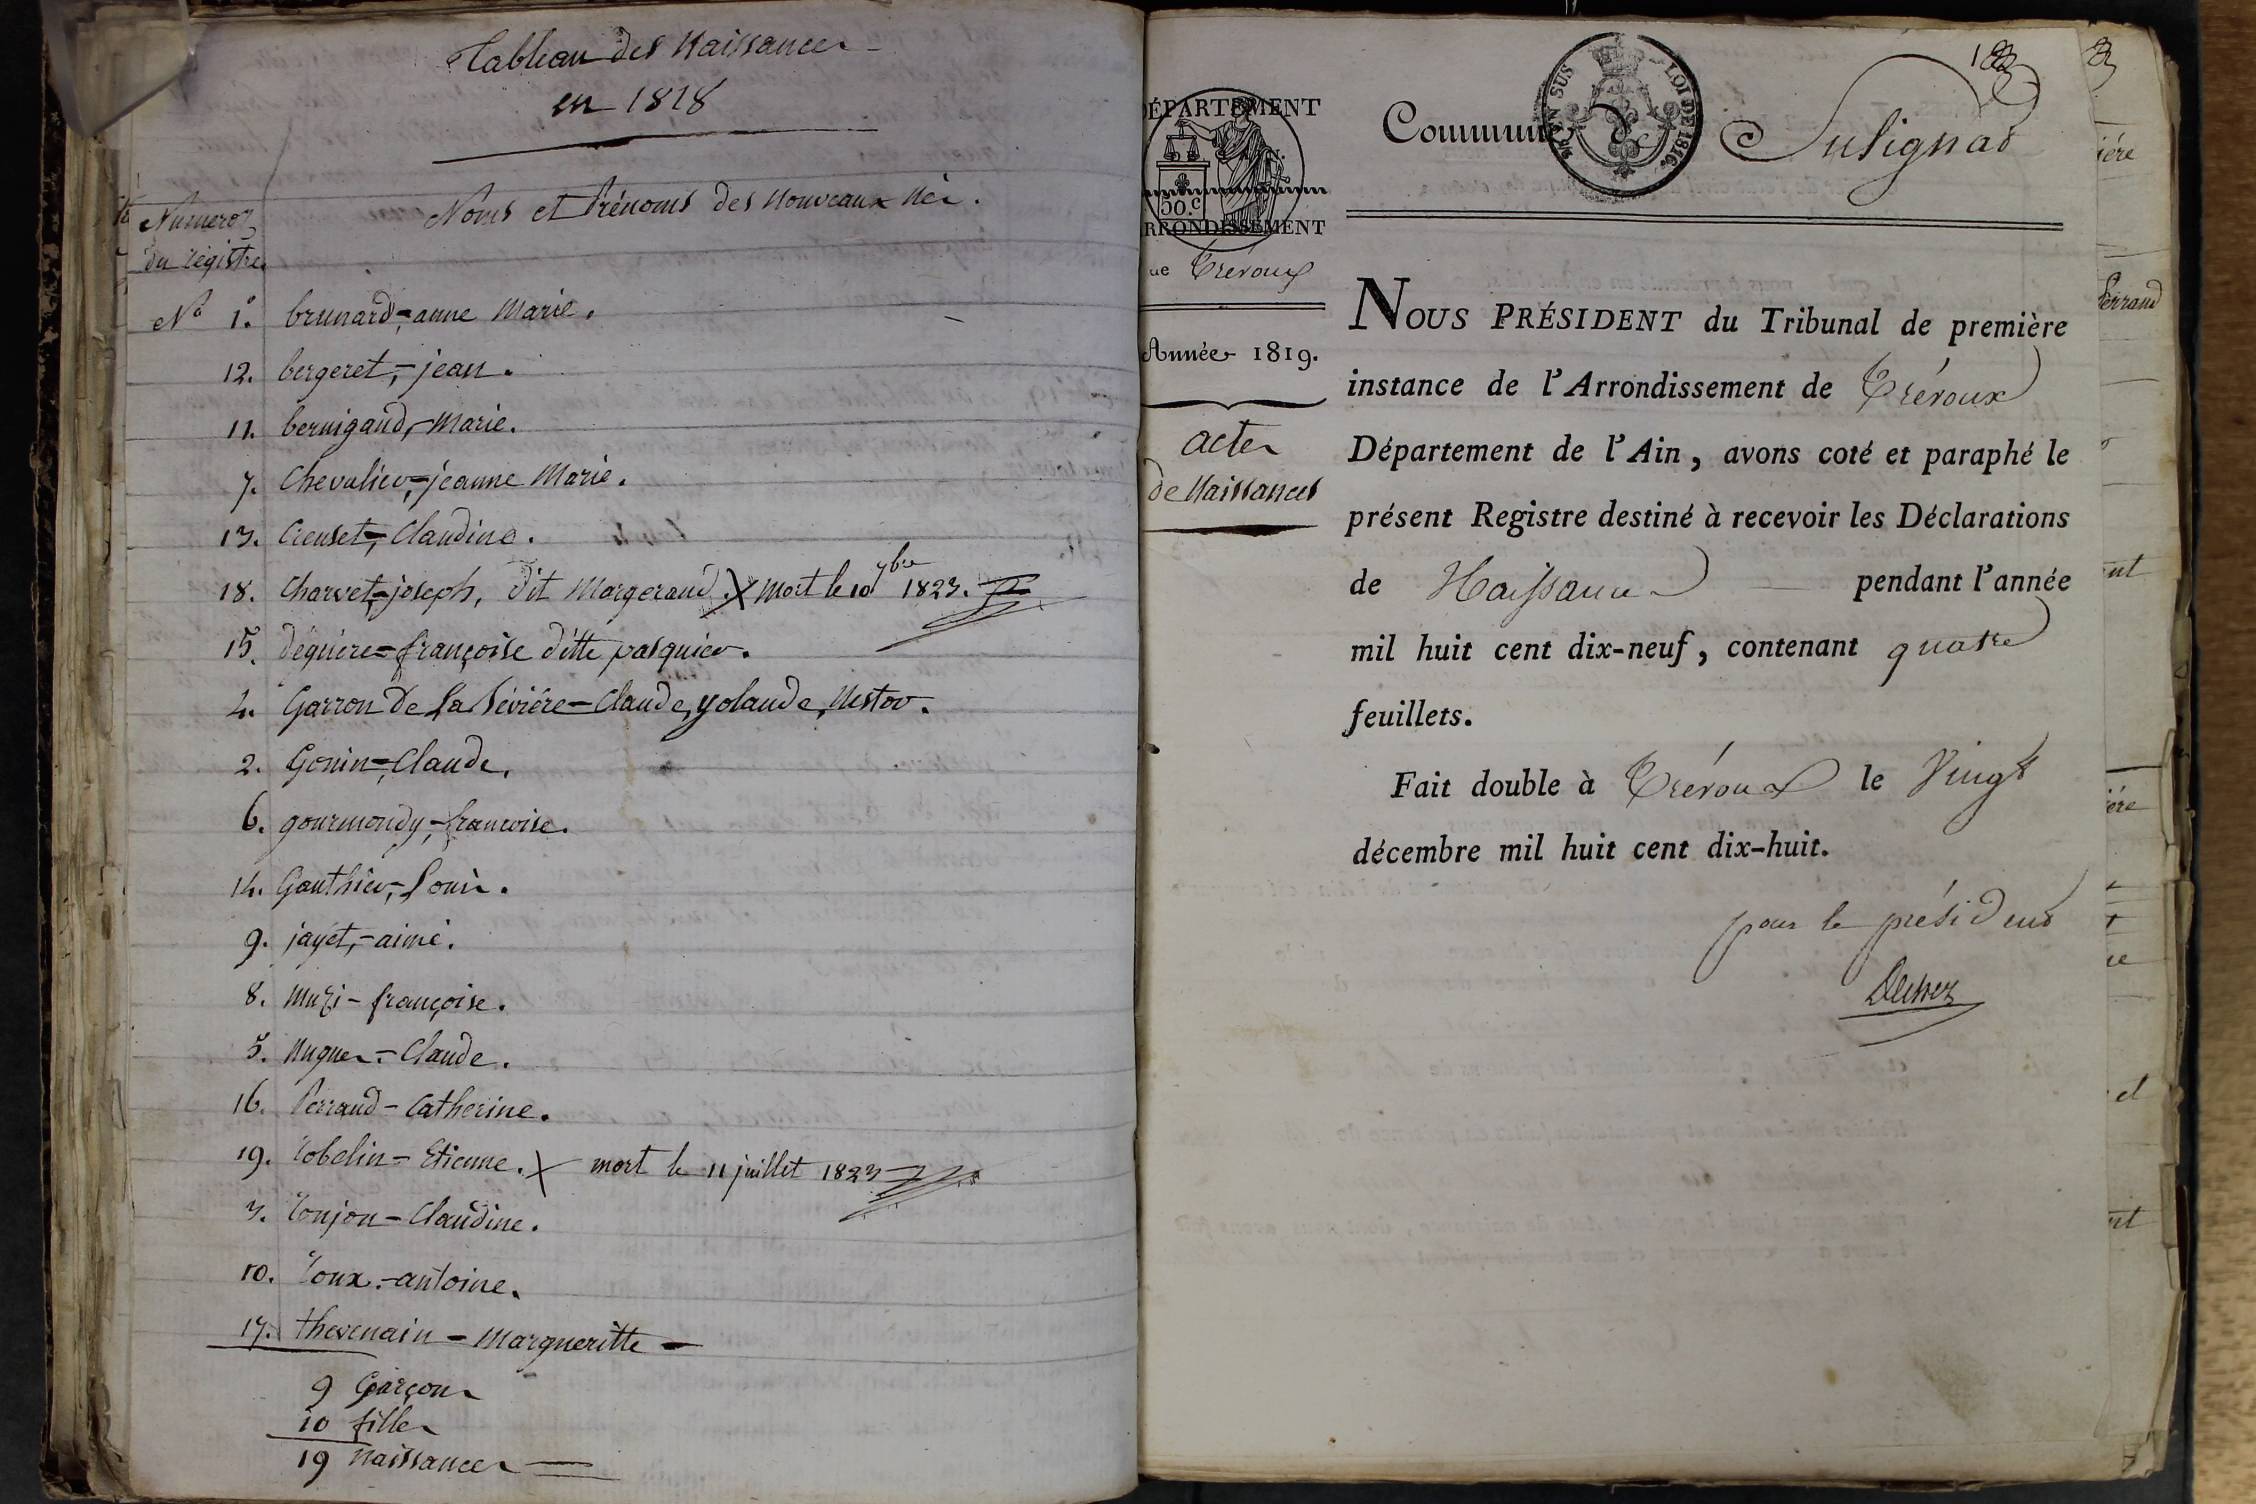 Tableau des Naissances
en 1818
Numeros
du régistre
Noms et Prénoms des Nouveaux Nés.
N° 1. brunard, anne Marie.
12. bergeret, - jean.
11. bernigaud, Marie.
7. Chevalier, jeanne Marie.
13. Creuset, Claudine.
18. Charvet, joseph, dit Margerand. X mort le 10 9bre 1823.
15. déguére = françoise ditte pasquier.
4. Garron De la Sévière = Claude, yolande, Nestor.
2. Gonin =, Claude.
6. gourmondy, - francoise.
14. Gauthier, Louis.
9. jayet, - aimé.
8. Muzi - françoise.
5. Nugues - Claude.
16. Perraud - Catherine.
19. Robelin = Etienne. X mort le 11 juillet 1823
3. Ronjon - Claudine.
10. Roux. - antoine.
17. thevenain - Margueritte -
9 Garçons
10 filles
19 Naissances
DÉPARTEMENT
AIN.
50.c
ARRONDISSEMENT
de Trévoux
Année 1819.
actes
de Naissances
Commune de Sulignat
LOI DE 1816.
NOUS PRÉSIDENT du Tribunal de première
instance de l'Arrondissement de Trévoux
Département de l'Ain, avons coté et paraphé le
présent Registre destiné à recevoir les Déclarations
de Naissance pendant l'année
mil huit cent dix-neuf, contenant quatre
feuillets.
Fait double à Trévoux le Vingt
décembre mil huit cent dix-huit.
pour le président